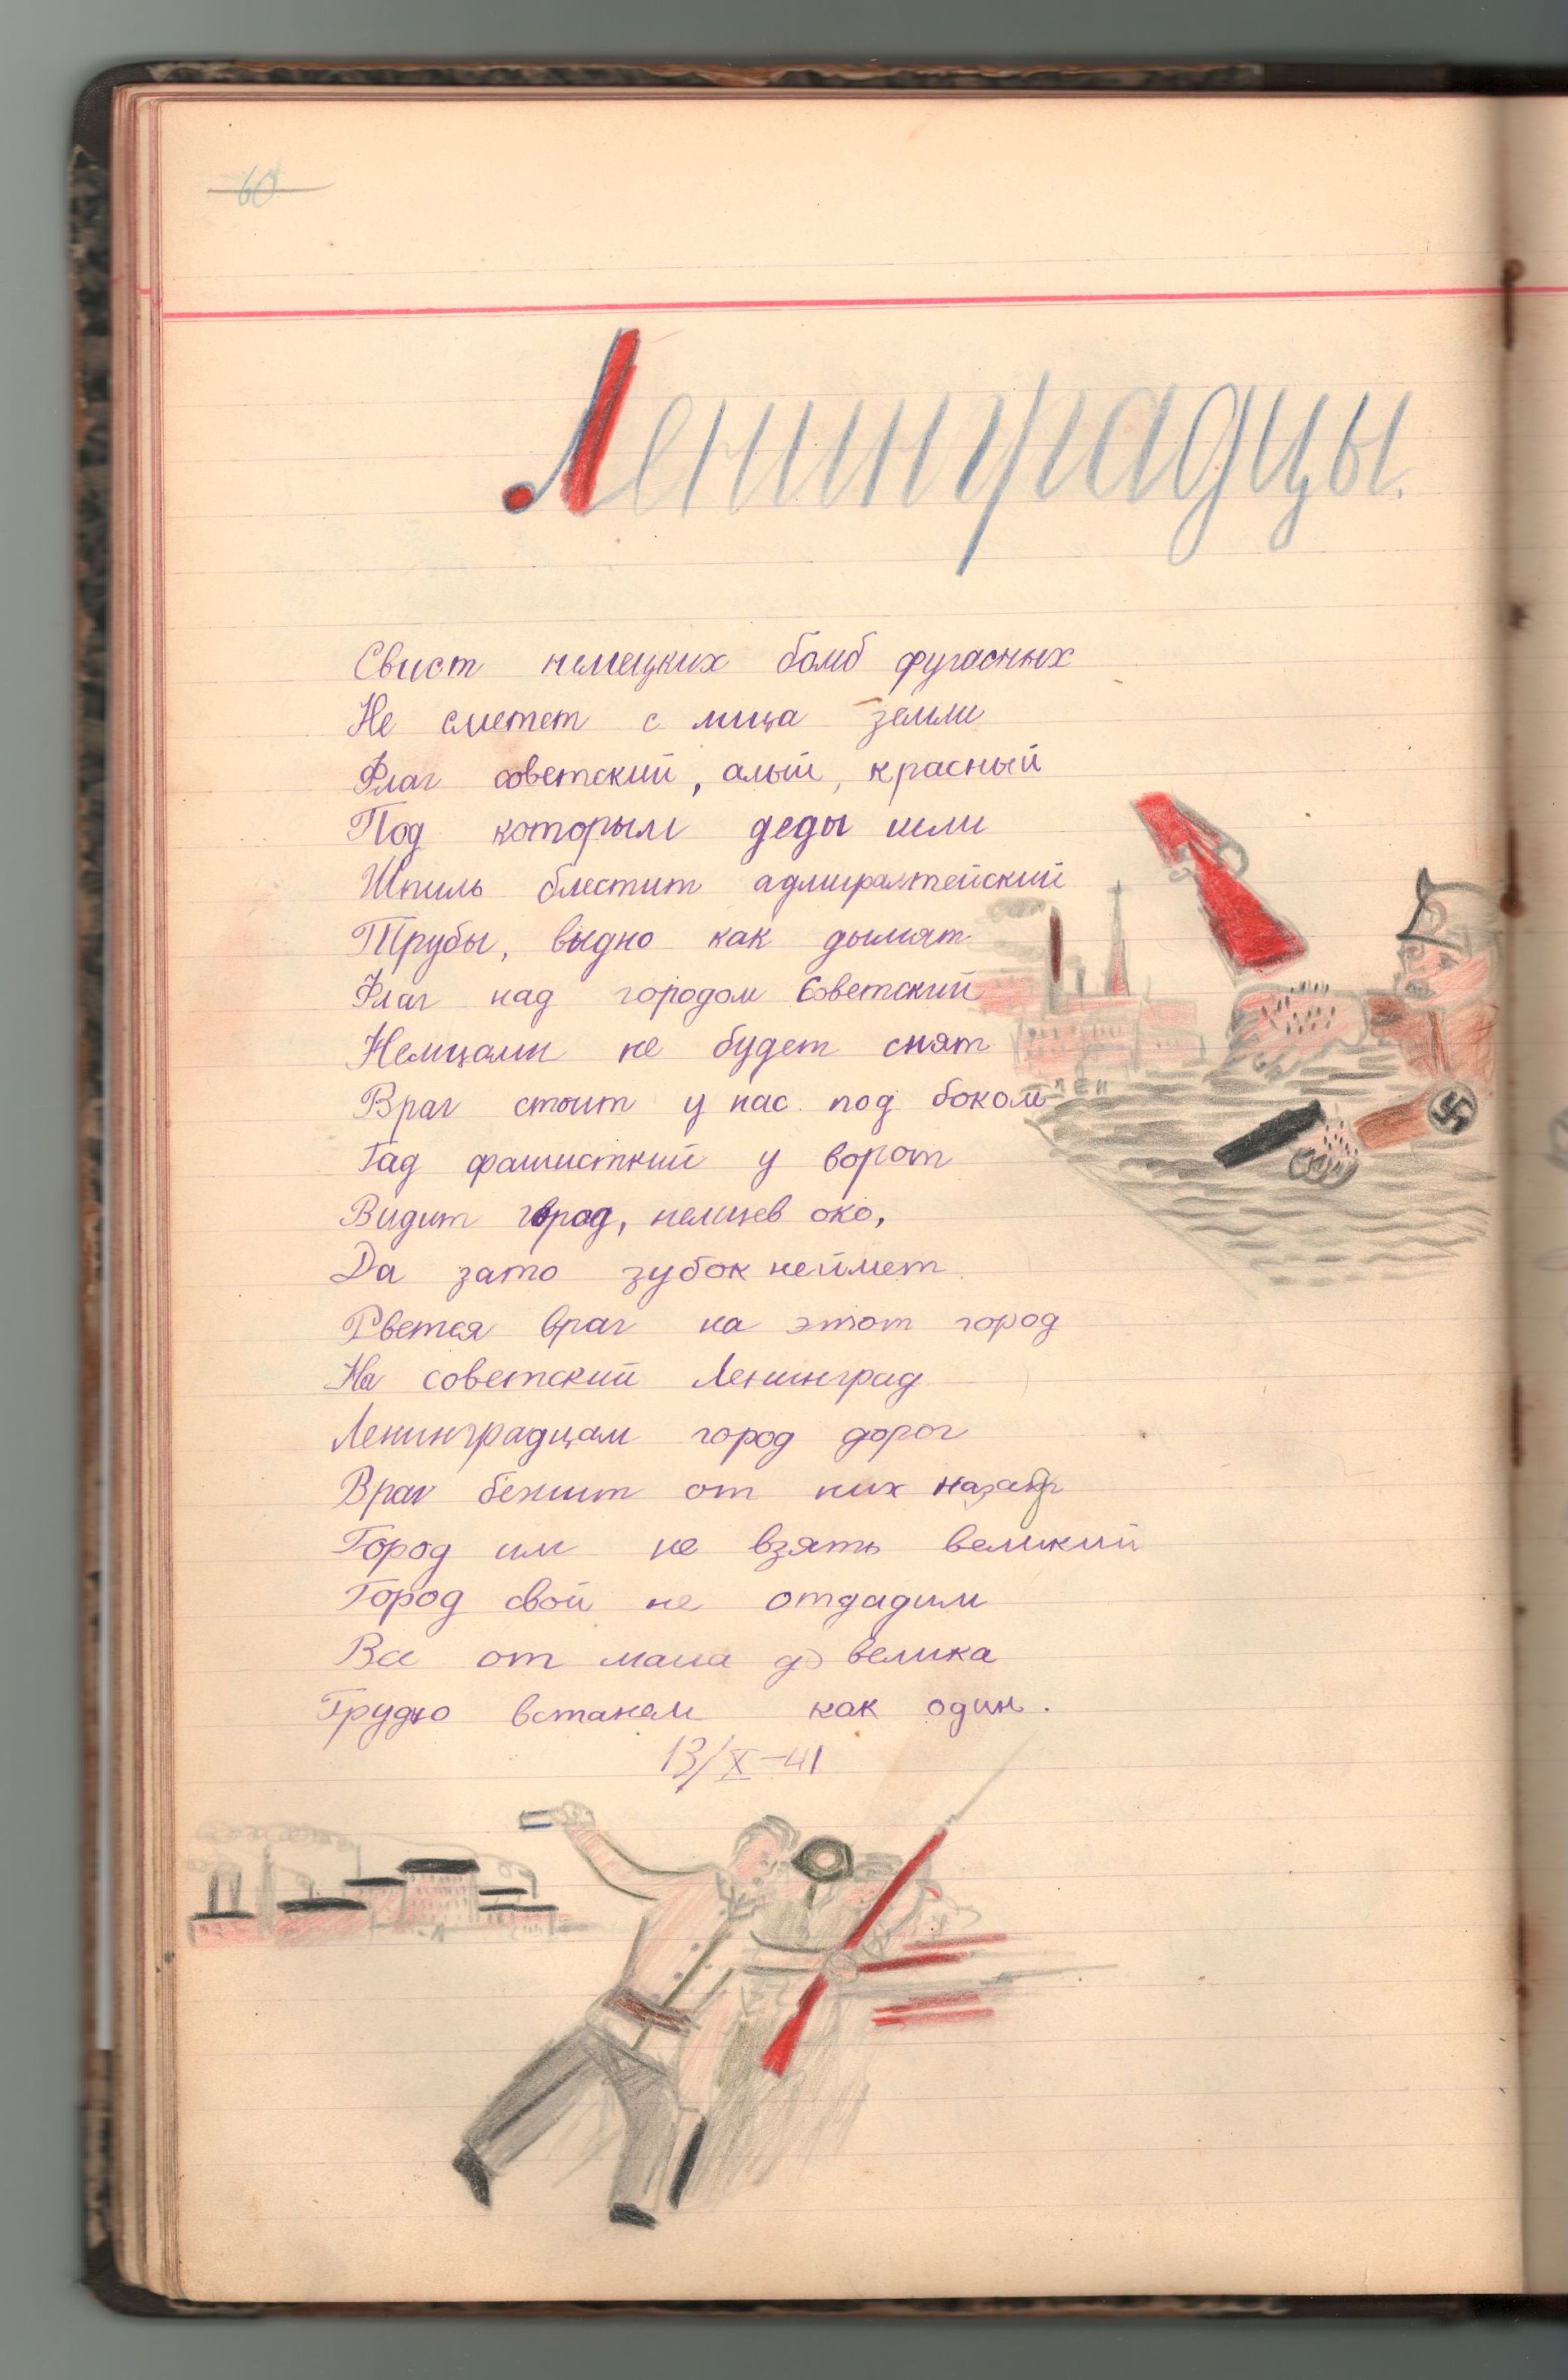 60
Ленинградцы.
Свист немецких бомб фугасных
Не сметет с лица земли
Флаг советский, алый, красный
Под которым деды шли
Шпиль блестит адмиралтейский
Трубы, видно как дымят
Флаг над городом Советский
Немцами не будет снят
ЛЕН
Враг стоит у нас под боком
Гад фашисткий у ворот
Видит город, немцев око,
Да зато зубок неймет
Рвется враг на этот город
На советский Ленинград
Ленинградцам город дорог
Враг бежит от них назад
Город им не взять великий
Город свой не отдадим
Все от мала до велика
Грудью встанем как один.
13/X-41